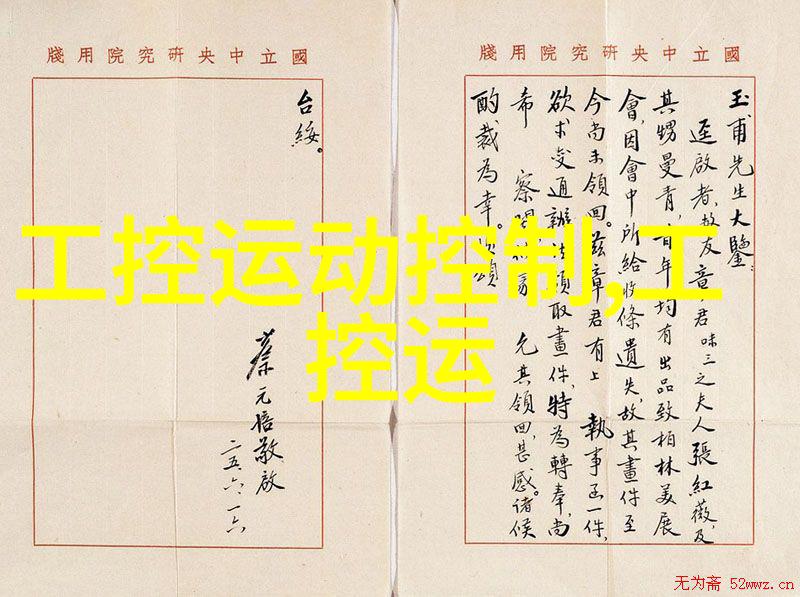 國立中央研究院用牋
玉甫先生大鑒：
逕啟者，故友章君味三之夫人張紅薇，及
其甥曼青，年均有出品致柏林美展
會，因會中所給收條遺失，故其畫件至
今尚未領回。茲章君有上 執事函一件，
欲求變通辦法領取畫件，特為轉奉，尚
希 察 允其領回，甚感。諸候
酌裁為幸。頌
國立中央研究院用牋
台綏。
蔡元培敬啟
二五、六、一六
工控运动控制,工
控运
无为斋 52wwz.cn